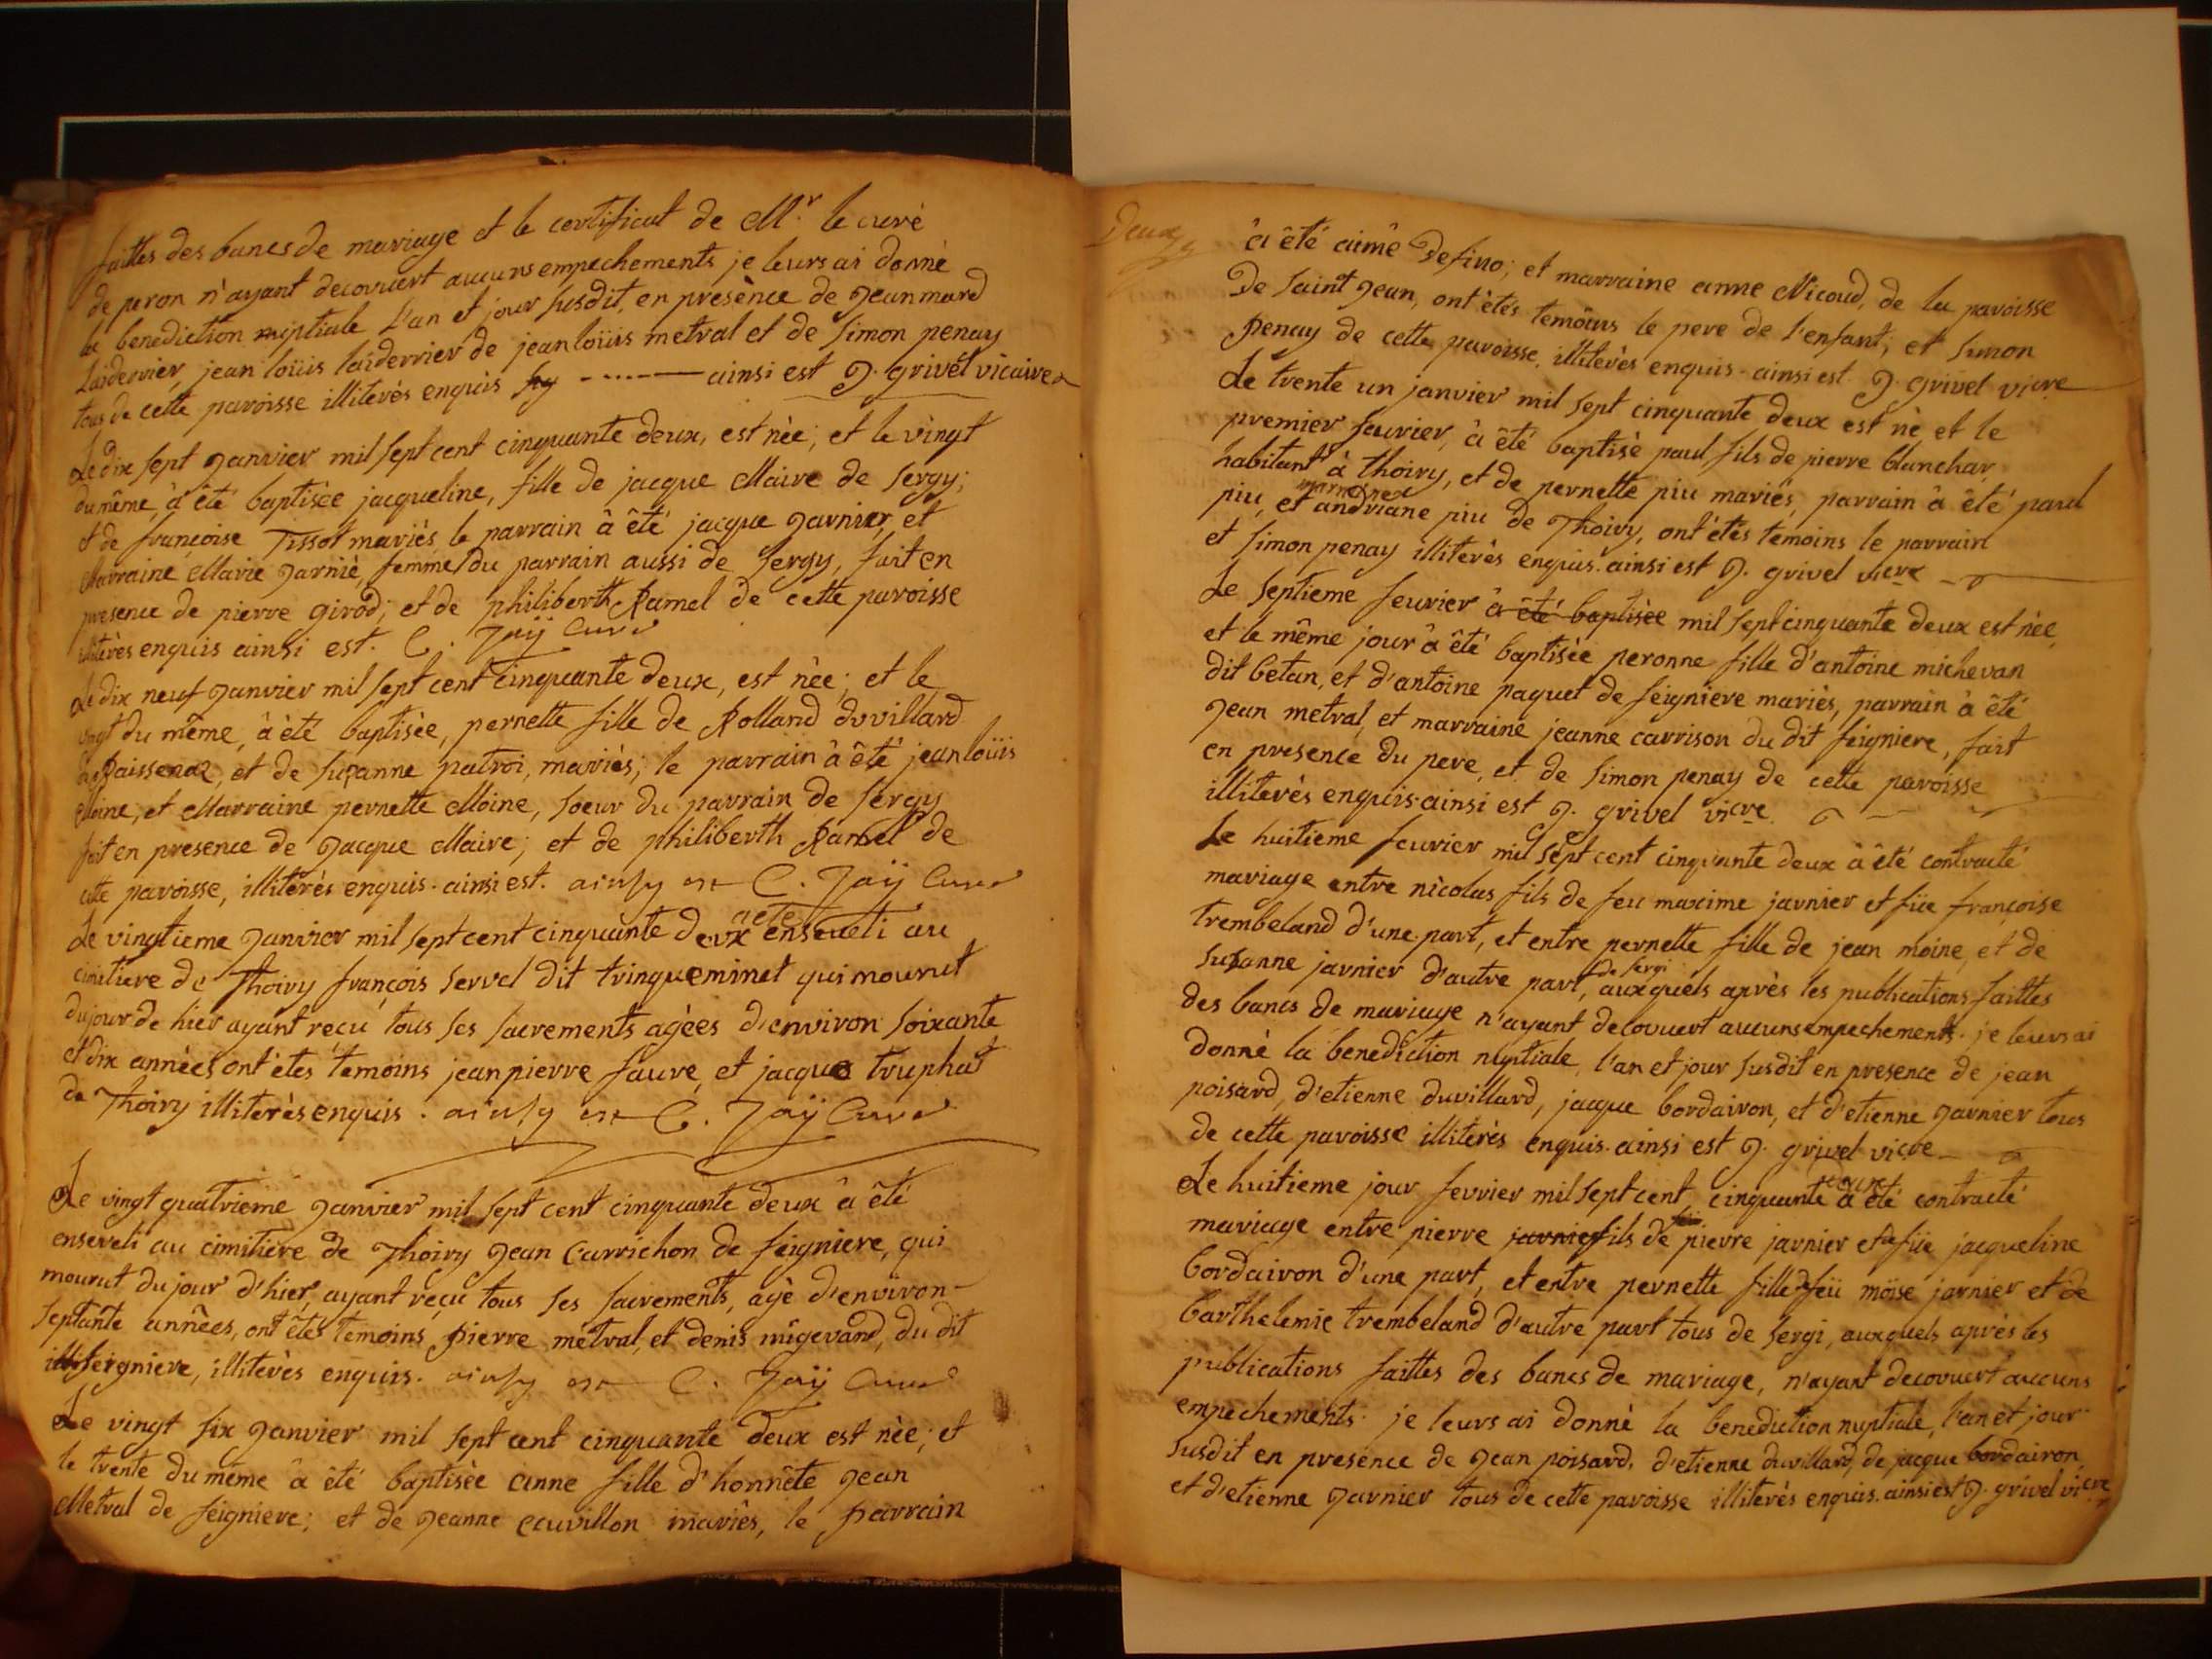 faittes des bancs de mariage et le certificat de Mr. le curé
de peron n'ayant decouvert aucuns empechements je leurs ai donné
la benediction nuptiale L'an et jour susdit, en presènce de Jean mard
Laiderrier, jean loüis laiderrier de jean loüis metral et de Simon penay
tous de cette paroisse illiterès enquis ainsi est J. grivel vicaire
Le dix sept Janvier mil sept cent cinquante deux, est nèe; et le vingt
du même, à été baptisèe jacqueline, fille de jacque Maire de Sergy;
et de françoise Tissot mariès le parrain à êté jacque Jarnier, et
Marraine Marie Jarniè, femme du parrain aussi de Sergy, fait en
presence de pierre girod; et de philiberth Ramel de cette paroisse
illiterès enquis ainsi est. C. Jaÿ Curé
Le dix neuf Janvier mil sept cent cinquante deux, est nèe; et le
vingt du même, à èté baptisèe, pernette fille de Rolland duvillard
de Raissenaz, et de Suzanne patroi, mariès; le parrain à êté jean loüis
Moine, et Marraine pernette Moine, soeur du parrain de Sergy
fait en presence de Jacque Maire; et de philiberth Ramel de
cette paroisse, illiterès enquis. ainsi est. ainsy est C. Jaÿ Curé
Le vingtieme Janvier mil sept cent cinquante deux a eté enseveli au
cimitiere de Thoiry françois Servel dit trinqueminet qui mourut
du jour de hier ayant reçu tous ses sacrements agèes d'environ soixante
et dix annèes ont étes temoins jean pierre fauré, et jacque truphat
de Thoiry illiterès enquis. ainsy est C. Jaÿ Curé
Le vingt quatrieme Janvier mil sept cent cinquante deux à êtè
enseveli au cimitiere de Thoiry Jean Carrichon de feigniere, qui
mourut du jour d'hier, ayant reçu tous ses sacrements, agè d'environ
septante annêes, ont étes temoins pierre metral, et denis migevand, du dit
feigniere, illiterès enquis. ainsy est C. Jaÿ Curé
Le vingt six Janvier mil sept cent cinquante deux est nèe; et
le trente du même à êté baptisèe anne fille d'honnête Jean
Metral de feigniere; et de Jeanne cauvillon mariès, le parrain
Deux
à êté aimê Defino; et marraine anne Nicoud, de la paroisse
De Saint Jean, ont étés temoins le pere de l'enfant; et Simon
penay de cette paroisse, illiterès enquis. ainsi est. J. grivel vicre
Le trente un janvier mil sept cinquante deux est nè et le
premier feurier, à été baptisè paul fils de pierre blanchar
habitant à thoiry, et de pernette piu mariès, parrain à êté paul
piu, et marraine andriane piu de Thoiry, ont étés temoins le parrain
et Simon penay illiterès enquis. ainsi est J. grivel vicre
Le Septieme feurier à été baptisèe mil sept cinquante deux est nèe
et le même jour à êté baptisèe peronne fille d'antoine michevan
dit betan, et d'antoine paquet de feigniere mariès, parrain à êté
Jean metral, et marraine jeanne carrison du dit feigniere, fait
en presence du pere, et de Simon penay de cette paroisse
illiterès enquis. ainsi est J. grivel vicre
Le huitieme feurier mil sept cent cinquante deux à êté contracté
mariage entre nicolas fils de feu maxime jarnier et füe françoise
trembeland d'une part, et entre pernette fille de jean moine, et de
Suzanne jarnier d'autre part, de sergi auxquels après les publications faittes
des bancs de mariage n'ayant decouvert aucuns empechements. je leurs ai
donnè la benediction nuptiale, l'an et jour susdit en presence de jean
poisard, d'etienne duvillard, jacque bordairon, et d'etienne Jarnier tous
de cette paroisse illiterès enquis. ainsi est J. grivel vicre
Le huitieme jour fevrier mil sept cent cinquante deux à été contracté
mariage entre pierre jarnier fils de feü pierre jarnier et de füe jacqueline
bordairon d'une part, et entre pernette fille de feü möise jarnier et de
barthelemie trembeland d'autre part tous de Sergi, auxquels après les
publications faittes des bancs de mariage, n'ayant decouvert aucuns
empechements. je leurs ai donnè la benediction nuptiale, l'an et jour
susdit en presence de Jean poisard, d'etienne duvillard, de jacque bordairon
et d'etienne Jarnier tous de cette paroisse illiterès enquis. ainsi est J. grivel vicre